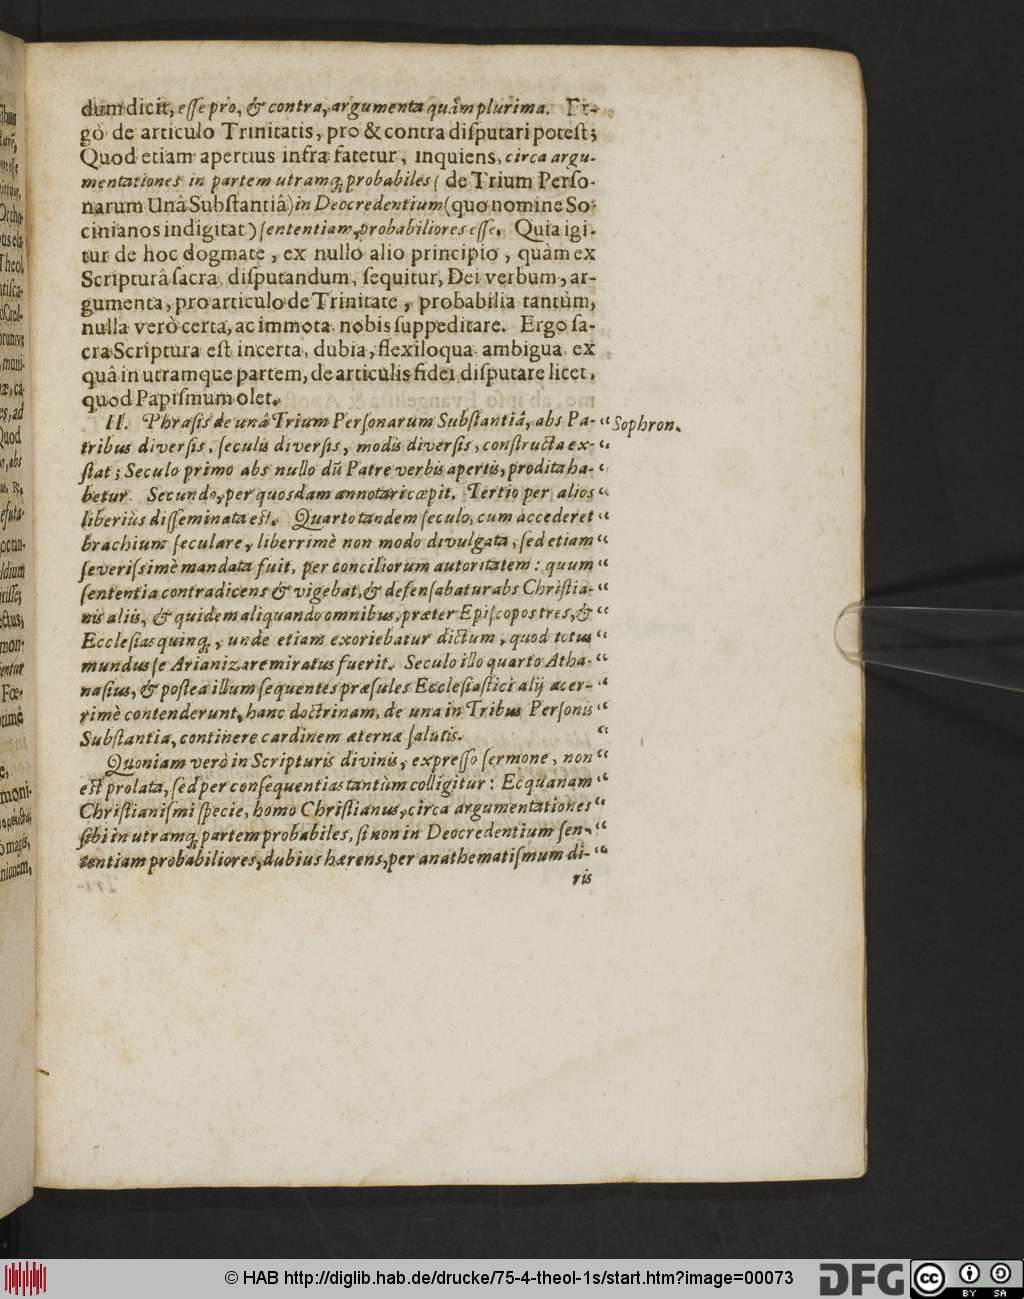 dum dicit, eſſe pro, & contra, argumenta quàm plurima. Er-
gò de articulo Trinitatis, pro & contra diſputari poteſt;
Quod etiam apertius infra fatetur, inquiens, circa argu-
mentationes in partem utramq; probabiles ( de Trium Perſo-
narum Unâ Subſtantiâ) in Deocredentium (quo nomine So-
cinianos indigitat) ſententiam, probabiliores eſſe. Quia igi-
tur de hoc dogmate, ex nullo alio principio, quàm ex
Scripturâ ſacra diſputandum, ſequitur, Dei verbum, ar-
gumenta, pro articulo de Trinitate, probabilia tantùm,
nulla verò certa, ac immota nobis ſuppeditare. Ergo ſa-
cra Scriptura eſt incerta, dubia, flexiloqua ambigua ex
quâ in utramque partem, de articulis fidei diſputare licet,
quod Papiſmum olet.
II. Phraſis de unâ Trium Perſonarum Subſtantiâ, abs Pa- “ Sophron.
tribus diverſis, ſeculis diverſis, modis diverſis, conſtructa ex- “
ſtat; Seculo primo abs nullo dũ Patre verbis apertis, prodita ha- “
betur. Secundo, per quosdam annotari cœpit. Tertio per alios “
liberiùs diſſeminata eſt. Quarto tandem ſeculo, cum accederet “
brachium ſeculare, liberrimè non modo divulgata, ſed etiam “
ſeveriſſimè mandata fuit, per conciliorum autoritatem: quum “
ſententia contradicens & vigebat, & defenſabatur abs Chriſtia- “
nis aliis, & quidem aliquando omnibus, præter Epiſcopos tres, & “
Eccleſias quinq;, unde etiam exoriebatur dictum, quod totus “
mundus ſe Arianizare miratus fuerit. Seculo illo quarto Atha- “
naſius, & poſtea illum ſequentes præſules Eccleſiaſtici alij acer- “
rimè contenderunt, hanc doctrinam, de una in Tribus Perſonis “
Subſtantia, continere cardinem æternæ ſalutis. “
Quoniam verò in Scripturis divinis, expreſſo ſermone, non “
eſt prolata, ſed per conſequentias tantùm colligitur: Ecquanam “
Chriſtianiſmi ſpecie, homo Chriſtianus, circa argumentationes “
ſibi in utramq; partem probabiles, ſi non in Deocredentium ſen- “
tentiam probabiliores, dubius hærens, per anathematiſmum di- “
ris
© HAB http://diglib.hab.de/drucke/75-4-theol-1s/start.htm?image=00073
DFG
cc BY SA